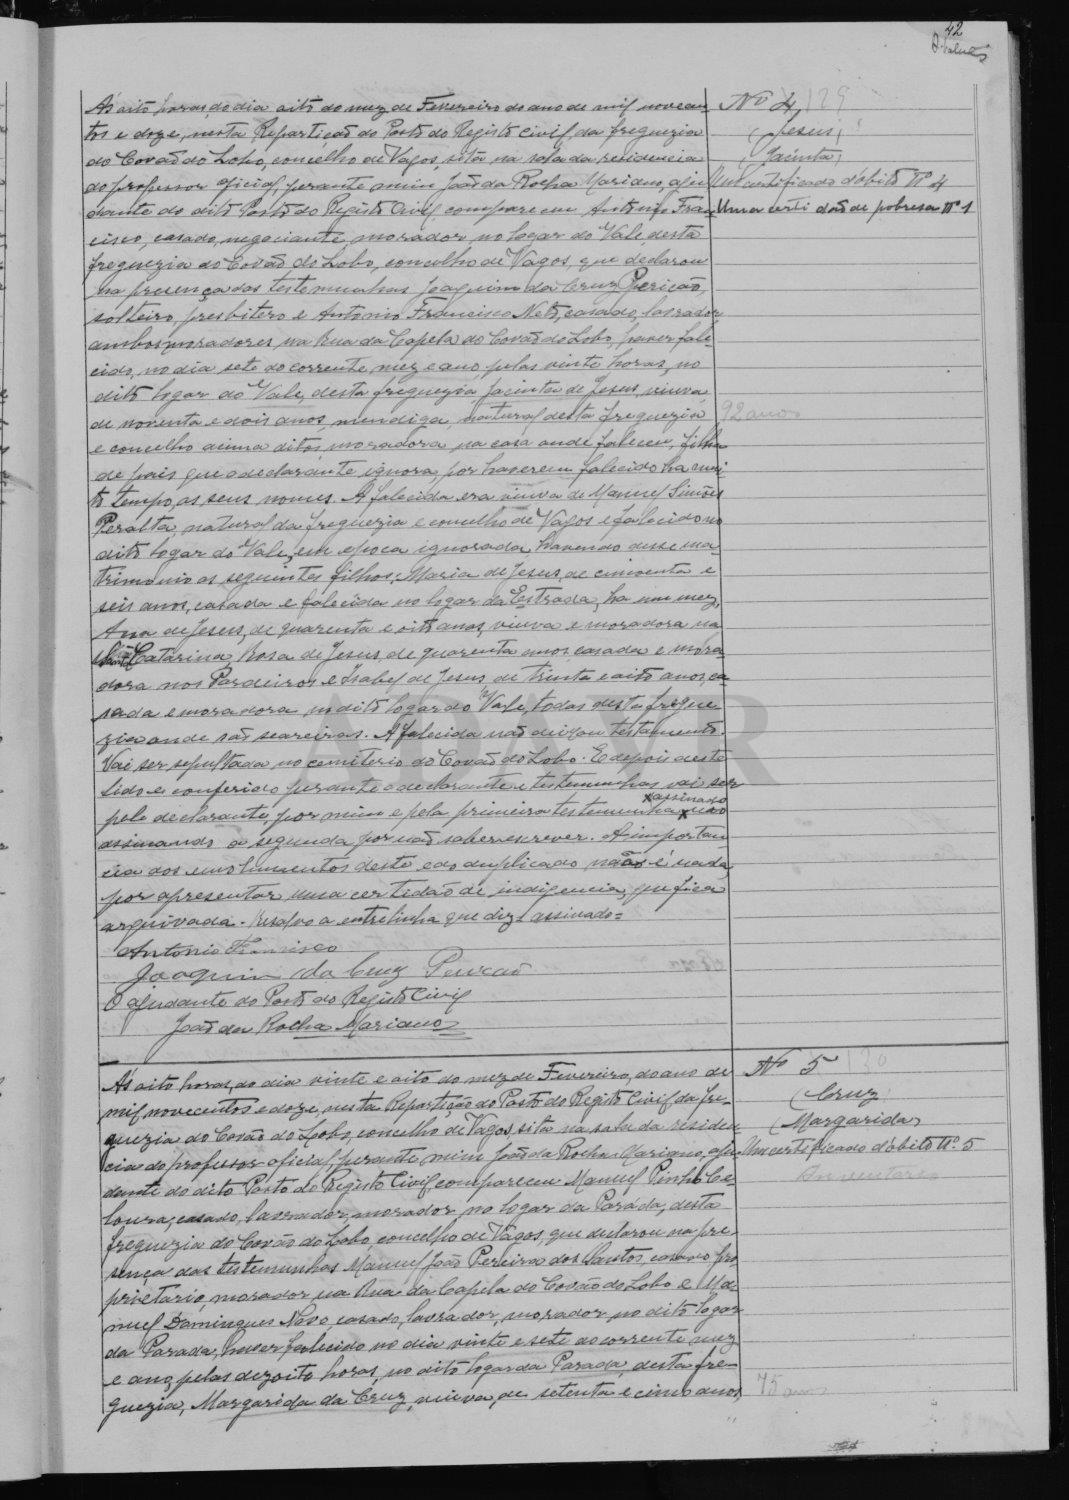 42
Ás oito horas, do dia oito do mez de Fevereiro do ano de mil novecen-
tos e doze, nesta Repartição do Posto do Registo civil, da freguezia
do Covão do Lobo, concelho de Vagos, sita na sala da residencia
do professor oficial, perante mim João da Rocha Mariano, aju-
dante do dito Posto do Registo Civil compareceu Antonio Fran-
cisco, casado, negociante, morador no logar do Vale desta
freguezia do Covão do Lobo, concelho de Vagos, que declarou
na presença das testemunhas Joaquim da Cruz Pericão,
solteiro, presbitero e Antonio Francisco Neto, casado, lavrador,
ambos moradores na Rua da Capela do Covão do Lobo, haver fale-
cido, no dia sete do corrente mez e ano pelas vinte horas, no
dito logar do Vale, desta freguezia, Jacinta de Jesus, viuva,
de noventa e dois anos, mendiga, natural desta freguezia
e concelho acima ditos, moradora na casa onde faleceu, filha
de pais que o declarante ignora, por haverem falecido ha mui-
to tempo, os seus nomes. A falecida era viuva de Manuel Simões
Peralta, natural da freguezia e concelho de Vagos e falecido no
dito logar do Vale, em epoca ignorada, havendo desse ma-
trimonio os seguintes filhos: Maria de Jesus, de cincoenta e
seis anos, casada e falecida no logar da Estrada, ha um mez,
Ana de Jesus, de quarenta e oito anos, viuva e moradora na
Santa Catarina, Rosa de Jesus, de quarenta anos, casada e mora-
dora nos Pardeiros e Isabel de Jesus, de trinta e oito anos, ca-
sada e moradora no dito logar do Vale, todas desta fregue-
zia onde são seareiras. A falecida não deixou testamento.
Vai ser sepultada no cemiterio do Covão do Lobo. E depois deste
lido e conferido perante o declarante e testemunhas vai ser
x assinado
pelo declarante, por mim e pela primeira testemunha x não
assinando a segunda por não saber escrever. A importan-
cia dos emolumentos deste e do duplicado não é nada,
por apresentar uma certidão de indigencia, que fica
arquivada. Resalvo a entrelinha que diz = assinado =
Antonio Francisco
Joaquim da Cruz Pericão
O ajudante do Posto do Registo Civil
João da Rocha Mariano
Nº 4 129
(Jesus,
(Jacinta)
Um certificado d'obito Nº 4
Uma certidão de pobresa Nº 1
92 anos
Ás oito horas, do dia vinte e oito do mez de Fevereiro, do ano de
mil novecentos e doze, nesta Repartição do Posto do Registo Civil da fre-
guezia do Covão do Lobo, concelho de Vagos, sita na sala da residen-
cia do professor oficial, perante mim João da Rocha Mariano, aju-
dante do dito Posto do Registo Civil, compareceu Manuel Pinho Ce-
loura, casado, lavrador, morador no logar da Parada, desta
freguezia do Covão do Lobo, concelho de Vagos, que declarou na pre-
sença das testemunhas Manuel João Pereira dos Santos, casado pro-
prietario, morador na Rua da Capela do Covão do Lobo e Ma-
nuel Domingues Novo, casado, lavrador, morador no dito logar
da Parada, haver falecido no dia vinte e sete do corrente mez
e ano, pelas dezoito horas, no dito logar da Parada, desta fre-
guezia, Margarida da Cruz, viuva, de setenta e cinco anos,
Nº 5 130
(Cruz
(Margarida)
Um certificado d'obito Nº 5
75 anos
ADAVR